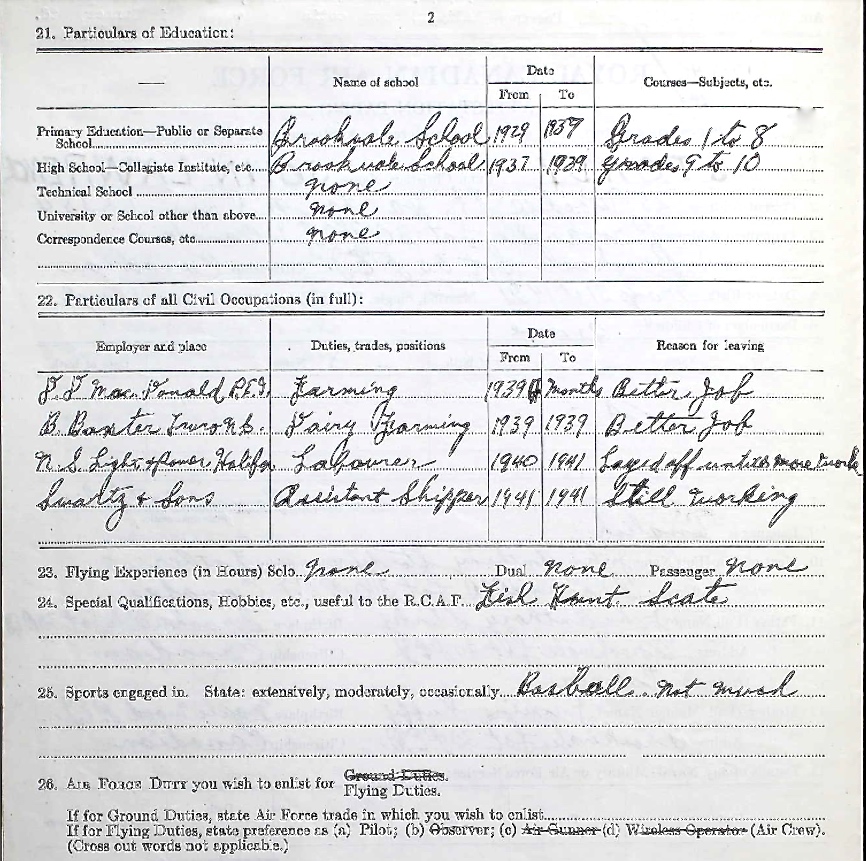 2
21. Particulars of Education:
— Name of school Date Courses—Subjects, etc.
From To
Primary Education—Public or Separate
School Brookvale School 1929 1937 Grades 1 to 8
High School—Collegiate Institute, etc. Brookvale School 1937 1939 grades 9 to 10
Technical School none
University or School other than above none
Correspondence Courses, etc. none
22. Particulars of all Civil Occupations (in full):
Employer and place Duties, trades, positions Date Reason for leaving
From To
Mac Donald P.E.I. Farming 1939 months Better Job
B. Baxter Truro N.S. Dairy Farming 1939 1939 Better Job
N.S. Light & Power, Halifax Labourer 1940 1941 Layed off untill more work
Swartz & Sons Assistant Shipper 1941 1941 Still working
23. Flying Experience (in Hours) Solo none Dual none Passenger none
24. Special Qualifications, Hobbies, etc., useful to the R.C.A.F. Fish Hunt. Scate
25. Sports engaged in. State: extensively, moderately, occasionally Basball. Not much
26. AIR FORCE DUTY you wish to enlist for Ground Duties.
Flying Duties.
If for Ground Duties, state Air Force trade in which you wish to enlist
If for Flying Duties, state preference as (a) Pilot; (b) Observer; (c) Air Gunner (d) Wireless Operator (Air Crew).
(Cross out words not applicable.)